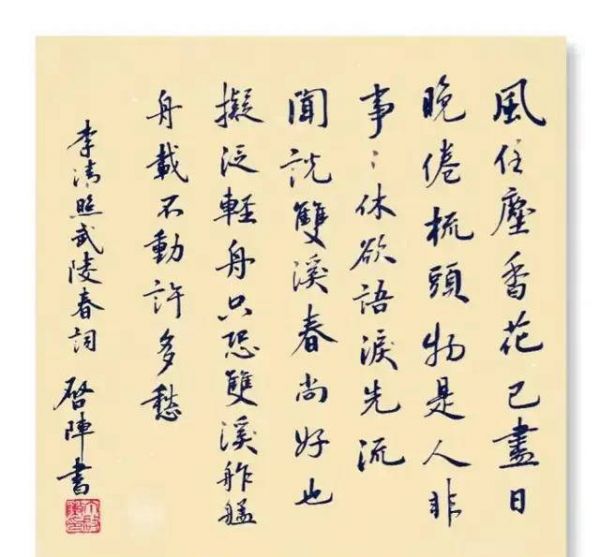 風住塵香花已盡日
晚倦梳頭物是人非
事〻休欲語淚先流
聞說雙溪春尚好也
擬泛輕舟只恐雙溪舴艋
舟載不動許多愁
李清照武陵春詞
啓陣書